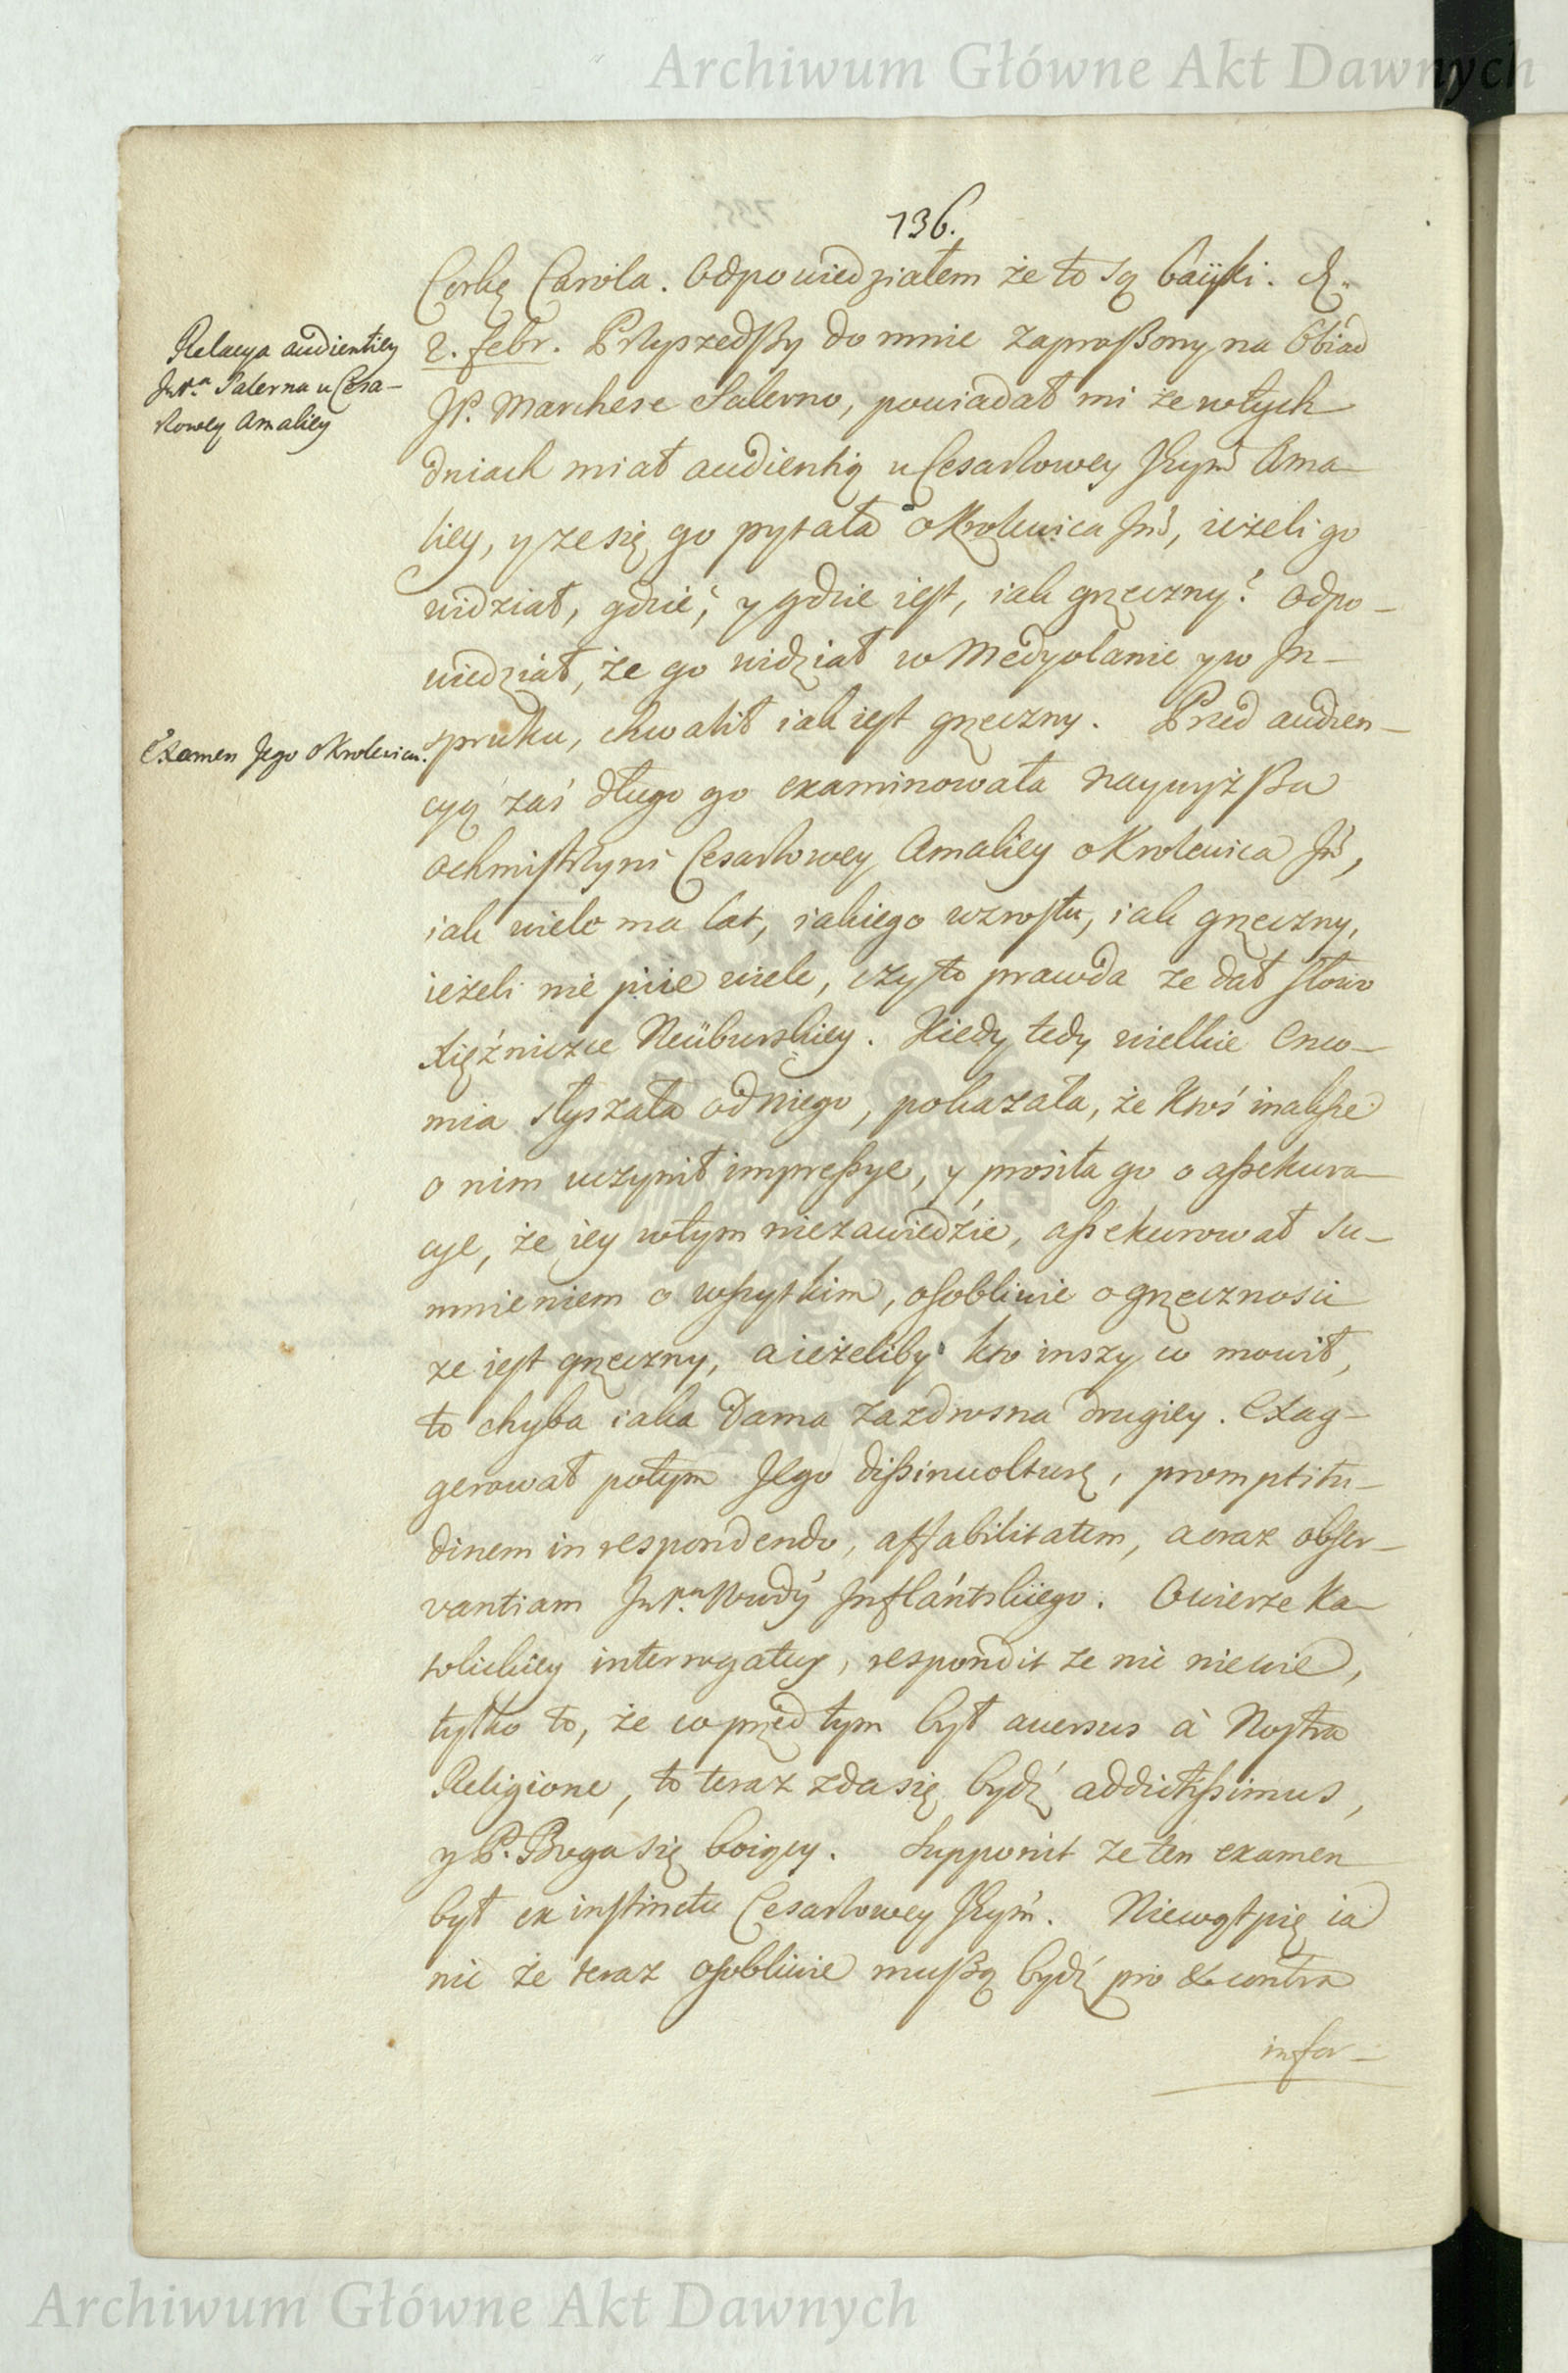 Archiwum Główne Akt Dawnych
136.
Corkę Carola. Odpowiedziałem że to są bayki. D.
2. febr. Przyszedßy do mnie zaproßony na Obiad
JP. Marchese Salerno, powiadał mi że wtych
dniach miał audientią u Cesarzowey Jeym̃ Ama-
liey, y ze się go pytała o Krolewica Jm̃, ieżeli go
widział, gdzie, y gdzie iest, iak grzeczny? Odpo-
wiedział, że go widział w Medyolanie y w In-
spruku, chwalił iak iest grzeczny. Przed audien-
cyą zaś długo go examinowała naywyżßa
Ochmistrzyni Cesarzowey Amaliey o Krolewica Jm̃,
iak wiele ma lat, iakiego wzrostu, iak grzeczny,
ieżeli nie piie wiele, czy to prawda ze dał słowo
Xięźniczce Neüburskiey. Kiedy tedy wielkie Enco-
mia słyszała od niego, pokazała, że ktoś inakße
o nim uczynił impreßye, y prosiła go o aßekura-
cye, że iey wtym niezawiedzie, aßekurował su-
mnieniem o wßytkim, osobliwie o grzecznosci
ze iest grzeczny, a ieżeliby kto inszy co mowił,
to chyba iaka Dama zazdrosna drugiey. Exag-
gerował potym Jego dißinvolturę, promptitu-
dinem in respondendo, affabilitatem, a oraz obser-
vantiam JwP.a Wwdy Inflántskiego. O wierze Ka-
tolickiey interrogatus, respondit ze nic niewie,
tylko to, że co przed tym był aversus à Nostra
Religione, to teraz zda się bydź addictißimus,
y P. Boga się boiący. Supponit ze ten examen
był ex instinctu Cesarzowey Jeym̃. Niewątpię ia
nic że teraz osobliwie mußą bydź pro & contra
infor-
Relacya audientiey
JwP.a Salerna u Cesa-
rzowey Amaliey
Examen Jego o Krolewicu.
Archiwum Główne Akt Dawnych